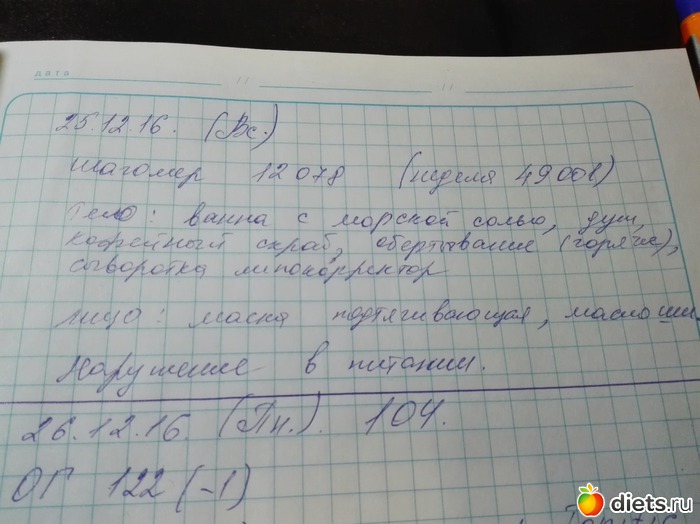 дата
25.12.16. (Вс.)
шагомер 12 078 (неделя 49 001)
Тело: ванна с морской солью, душ,
кофейный скраб, обертывание (горячее),
сыворотка липокорректор
лицо: маска подтягивающая, масло ши
Нарушение в питании.
26.12.16. (Пн.). 104.
ОГ 122 (-1)
diets.ru